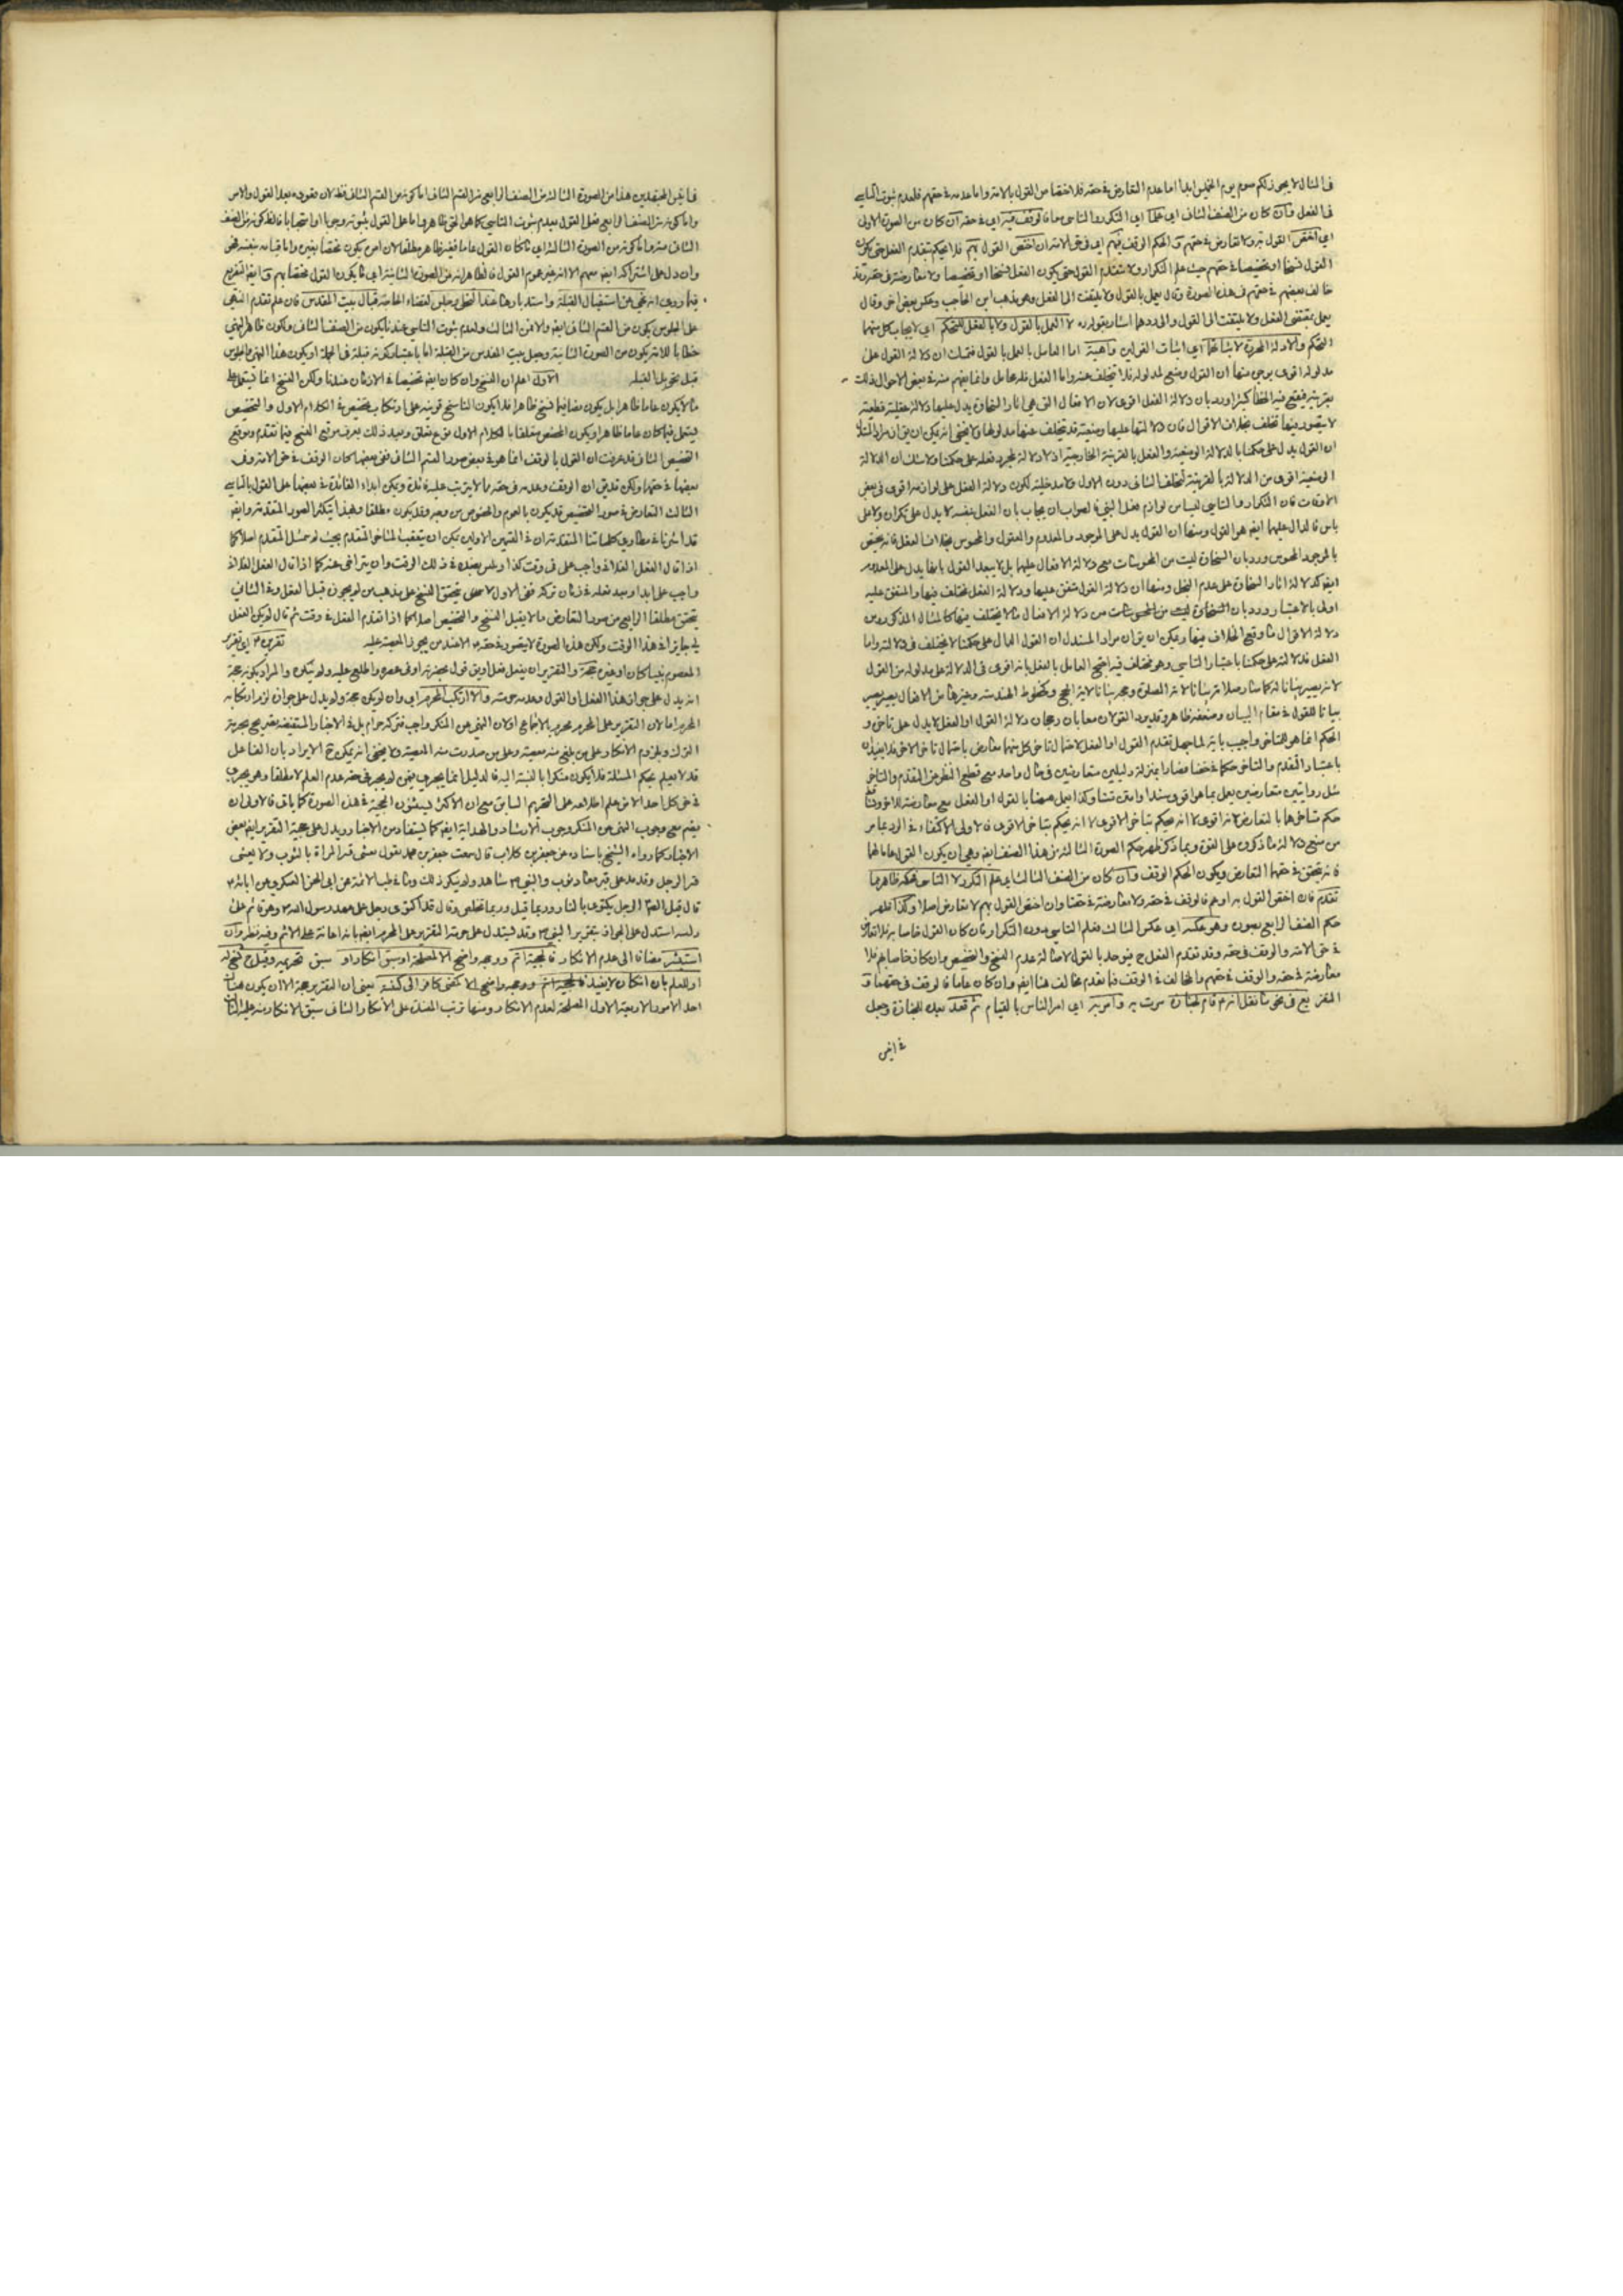 في المثال لا يجوز لكم صوم يوم الخميس ابدا اما عدم التعارض في حقه فلاختصاص القول بالامة واما عدمه في حقهم فلعدم ثبوت التاسي
في الفعل وان كان من الصنف الثاني اي علم اي التكرر لا التاسي فالوقف فيه اي في حقه ان كان من الصورة الاولى
اي اختص القول به ولا تعارض في حقهم والحكم الوقف فيهم اي في حق الامة ان اختص القول بهم فلا يحكم بتقدم الفعل حتى يكون
القول نسخا او تخصيصا في حقهم حيث علم التكرار ولا بتقدم القول حتى يكون الفعل نسخا او تخصيصا ولا معارضة في حقه وقد
خالف بعضهم في حقهم في هذه الصورة وقال يعمل بالقول ولا يلتفت الى الفعل وهو مذهب ابن الحاجب وعكس بعض اخر وقال
يعمل بمقتضى الفعل ولا يلتفت الى القول والى ردهما اشار بقوله لا العمل بالقول ولا بالفعل للتحكم اي لايجاب كل منهما
التحكم والادلة المحررة لاثباتها اي اثبات القولين واهية اما العامل بالعمل بالقول فتمسك ان دلالة القول على
مدلوله اقوى بوجوه منها ان القول وضع لمدلوله فلا يتخلف عنه واما الفعل فله محامل وانما يفهم منه في بعض الاحوال ذلك
بقرينة فيقع فيه الخطأ كثيرا ورد بان دلالة الفعل اقوى لان الافعال التي هي اثار السخاوة يدل عليها دلالة عقلية قطعية
لا يتصور فيها تخلف بخلاف الاقوال فان دلالتها عليها وضعية قد تتخلف عنها مدلولها ولا يخفى انه يمكن ان يق ان مراد المستدل
ان القول يدل على حكمنا بالدلالة الوضعية والفعل بالقرينة الخارجية اذ لا دلالة لمجرد فعله على حكمنا ولا شك ان الدلالة
الوضعية اقوى من الدلالة بالقرينة لتخلف الثاني دون الاول
الاوقات فان التكرار والتاسي ليسا من لوازم فعل النبي فالصواب ان يجاب بان الفعل بنفسه لا يدل على تكرار ولا على
تاس فالدال عليهما ايضا هو القول ومنها ان القول يدل على الموجود والمعدوم والمعقول والمحسوس بخلاف الفعل فانه يختص
بالموجود المحسوس ورد بان السخاوة ليست من المحسوسات مع دلالة الافعال عليها بل لا يبعد القول بانها يدل على المعدوم
ايضا كدلالة اثار السخاوة على عدم البخل ومنها ان دلالة القول متفق عليها ودلالة الفعل مختلف فيها والمتفق عليه
اولى بالاعتبار ورد بان السخاوة ليست من المحسوسات من دلالة الافعال ما لا يختلف فيها كالمثال المذكور ومن
دلالة الاقوال ما وقع الخلاف فيها ويمكن ان يق ان مراد المستدل ان القول الدال على حكمنا لا يختلف في دلالته واما
الفعل فدلالته على حكمنا باعتبار التاسي وهو مختلف فيه احتج العامل بالفعل بانه اقوى في الدلالة على مدلوله من القول
بيانا للقول في مقام البيان وضعفه ظاهر وقد يورد القولان معا بان رجحان دلالة القول او الفعل لا يدل على تاخره و
الحكم انما هو للمتاخر واجيب بانه لما جهل تقدم القول او الفعل لاحتمال تاخر كل منهما معارض باحتمال تاخر الاخر
باعتبار التقدم والتاخر حكما محضا فصارا بمنزلة دليلين متعارضين في حال واحد مع قطع النظر عن التقدم والتاخر
مثل روايتين متعارضتين يعمل بما هو اقوى سندا او متنا
حكم تاخرهما بالتعارض لانه اقوى لا انه يحكم بتاخر الاقوى لا انه يحكم بتاخر الاقوى فالاولى الاكتفاء في الرد بما مر
من منع دلالة ما ذكروه على القوة وبما ذكر ظهر حكم الصورة الثالثة من هذا الصنف ايضا وهي ان يكون القول عاما لهما
فانه يتحقق في حقهما التعارض ويكون الحكم الوقف وان كان من الصنف الثالث اي علم التكرر لا التاسي فحكمه ظاهر مما
تقدم فان اختص القول به او عم فالوقف في حقه ولا معارضة في حقنا وان اختص القول بهم لا تعارض اصلا وكذا ظهر
حكم الصنف الرابع بصوره وهو عكسه اي عكس الثالث فعلم التاسي دون التكرار فان كان القول خاصا به فلا تعارض
في حق الامة والوقف في حقه
معارضة في حقه والوقف في حقهم والخالف في الوقف فيما تقدم مخالف هنا ايضا وان كان عاما فالوقف في حقهما و
التفريع في نحو ما نقل انه قام لجنازة مرت به وامر به اي امر الناس بالقيام ثم قعد بعد للجنازة وجعل
في اغير
واما كونه من الصنف الرابع فعلى القول بعدم ثبوت التاسي كما هو الحق ظاهر واما على القول بثبوته وجوبا او استحبابا فالظاهر كونه من الصنف
الثاني منه واما كونه من الصورة الثالثة اي ما كان القول عاما ففيه ظاهر مطلقا لان امره يكون مختصا بغيره واما قيامه بنفسه فهو
وان دل على اشتراكه ايضا معهم الا انه غير عموم القول فالظاهر انه من الصورة الثانية اي ما يكون القول مختصا بهم وايضا التفريع
فيما روي انه نهى عن استقبال القبلة واستدبارها عند التخلي وجلس لقضاء الحاجة قبال بيت المقدس فان علم تقدم النهي
على الجلوس يكون من القسم الثاني ايضا والا فمن الثالث ولعدم ثبوت التاسي عندنا يكون من الصنف الثاني ولكون ظاهر النهي
خطابا للامة يكون من الصورة الثانية وجعل بيت المقدس من القبلة اما باعتبار كونه قبلة في الجملة او يكون هذا النهي والجلوس
قبل تحويل القبلة الاول اعلم ان النسخ وان كان ايضا تخصيصا في الازمان عندنا ولكن النسخ انما
ما لا يكون عاما ظاهرا بل يكون
فيما كان عاما ظاهرا ويكون المخصص متعلقا بالكلام الاول نوع تعلق وبعد ذلك يعرف موقع النسخ فيما تقدم وموقع
التخصيص الثاني قد عرفت ان القول بالوقف انما هو في بعض صور القسم الثاني ففي بعضها كان الوقف في حق الامة وفي
بعضها في حقه ولكن قد يق ان الوقف وعدمه في حقه مما لا يترتب عليه فائدة ويمكن ابداء الفائدة في بعضها على القول بالتاسي
الثالث التعارض في صور التخصيص قد يكون بالعموم والخصوص من وجه وقد يكون مطلقا وبهذا يتكثر الصور المتقدمة وايضا
قد اشرنا في مطاوي كلماتنا المتقدمة ان في القسمين الاولين يمكن ان يتعقب المتاخر المتقدم بحيث لم يعمل المتقدم اصلا كما
اذا قال الفعل الفلاني واجب علي في وقت كذا وتلبس بضده في ذلك الوقت وان يتراخى عنه كما اذا قال الفعل الفلاني
واجب علي ابدا وبعد فعله في زمان تركه ففي الاول لا يتحقق النسخ على مذهب من لم يجوزه قبل الفعل وفي الثاني
يتحقق مطلقا الرابع من صور التعارض ما لا يقبل النسخ والتخصيص اصلا كما اذا تقدم الفعل في وقت ثم قال لم يكن الفعل
لي جايزا في هذا الوقت ولكن هذه الصورة لا يتصور في حقه الا عند من يجوز المعصية عليه تقريره اي تقرير
المعصوم نبيا كان او غيره حجة والتقرير ان يفعل فعل او يق قول بحضرته او في عصره واطلع عليه ولم ينكره والمراد بكونه حجة
انه يدل على جواز هذا الفعل او القول وعدم حرمته والا ارتكب المحرم اي وان لم يكن حجة ولم يدل على جوازه لزم ارتكابه
المحرم اما لان التقرير على المحرم محرم بالاجماع او لان النهي عن المنكر واجب فتركه حرام بل في الاخبار المستفيضة تصريح بحرمة
الترك ولزوم الانكار على من بلغ منه معصية وعلى من صدرت منه المعصية ولا يخفى انه يمكن ح الايراد بان الفاعل
قد لا يعلم بحكم المسئلة فلا يكون منكرا بالنسبة اليه فالدليل انما يجري فيمن لم يجر في حقه عدم العلم لا مطلقا وهو يجري
في حق كل احد الا من علم اطلاعه على التحريم السابق مع ان الاكثر يثبتون الحجية في هذه الصورة كما ياتي فالاولى ان
يضم مع وجوب النهي عن المنكر وجوب الارشاد والهداية ايضا كما يستفاد من الاخبار ويدل على حجية التقرير ايضا بعض
الاخبار كما رواه الشيخ باسناده عن جعفر بن كلاب قال سمعت جعفر بن محمد يقول يغشى قبر المراة بالثوب ولا يغشى
قبر الرجل وقد مد على قبر سعد بن معاذ ثوب والنبي ص شاهد ولم ينكر ذلك وما في طب الائمة عن ابي الحسن العسكري عن ابائه
وقال قد اكتوى رجل على عهد رسول الله ص وهو قائم على
راسه استدل على الجواز بتقرير النبي ص وقد يستدل على حرمة التقرير على المحرم ايضا بانه اعانة على الاثم وفيه نظر وان
استبشر مضافا الى عدم الانكار فالحجية اتم ووجهه واضح الا لمصلحة او سبق انكار او سبق تحريمه وقيل ح نسخ له
او للعلم بان انكاره لا يفيد ووجهه واضح الا كمضي كافر الى كنيسة يعني ان التقرير حجة الا ان يكون هناك
احد الامور الاربعة الاول المصلحة لعدم الانكار ومنها ترتب المفسدة على الانكار والثاني سبق الانكار منه عليه